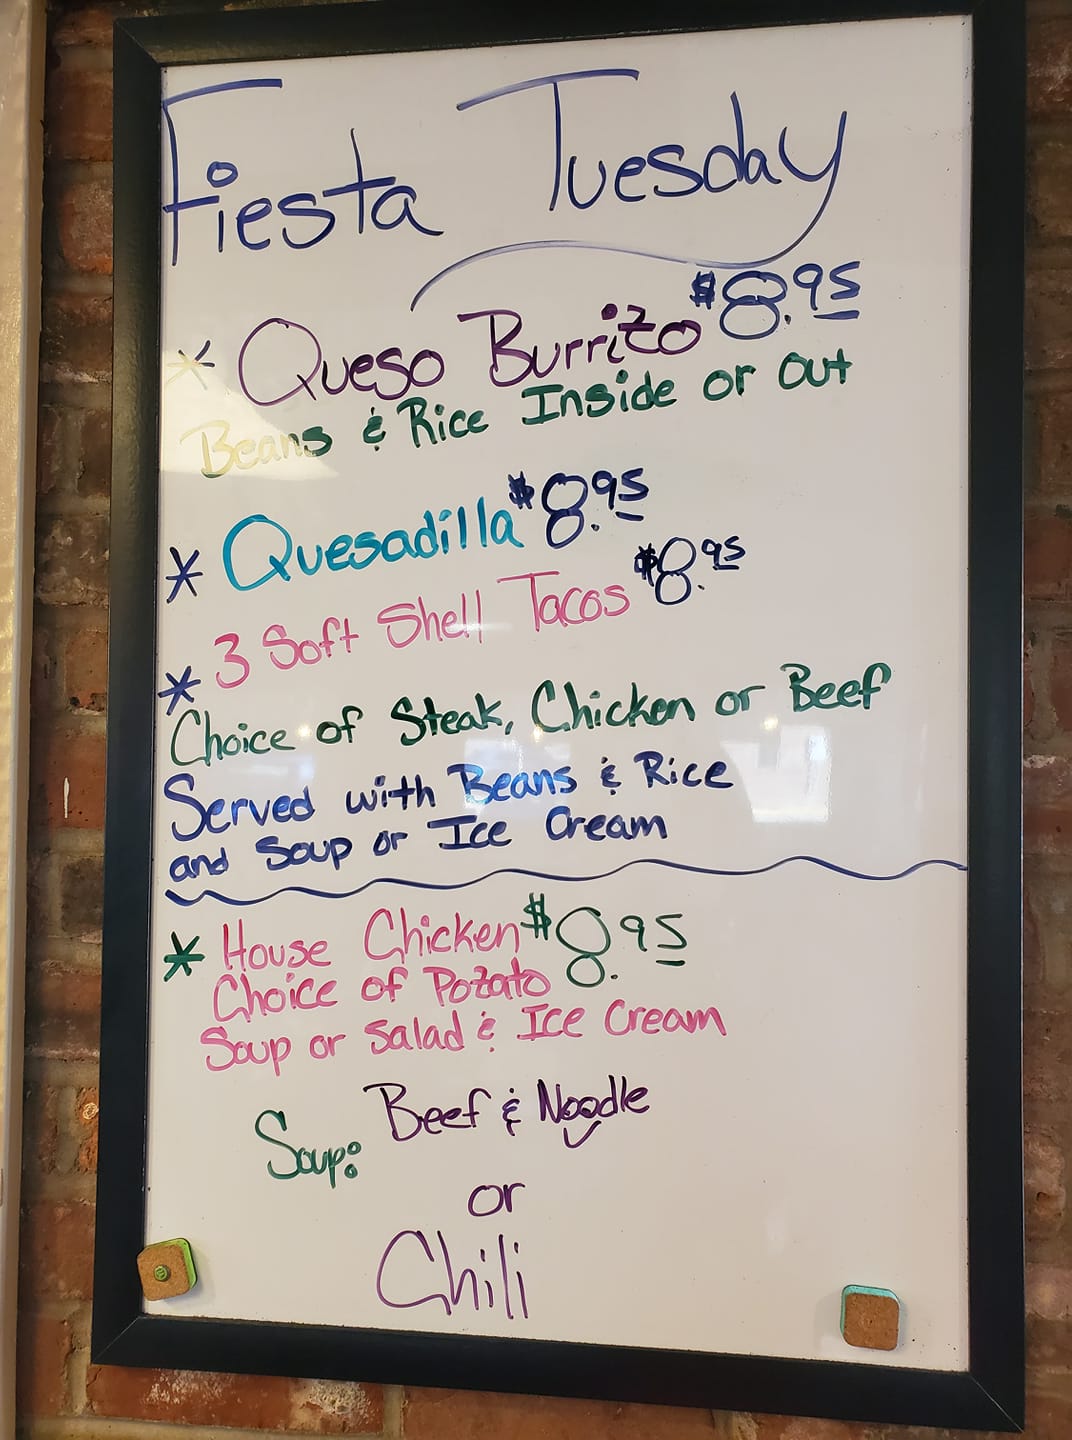 Fiesta Tuesday
* Queso Burrito $8.95
Beans & Rice Inside or Out
* Quesadilla $8.95
* 3 Soft Shell Tacos $8.95
Choice of Steak, Chicken or Beef
Served with Beans & Rice
and Soup or Ice Cream
* House Chicken $8.95
Choice of Potato
Soup or Salad & Ice Cream
Soup: Beef & Noodle
or
Chili